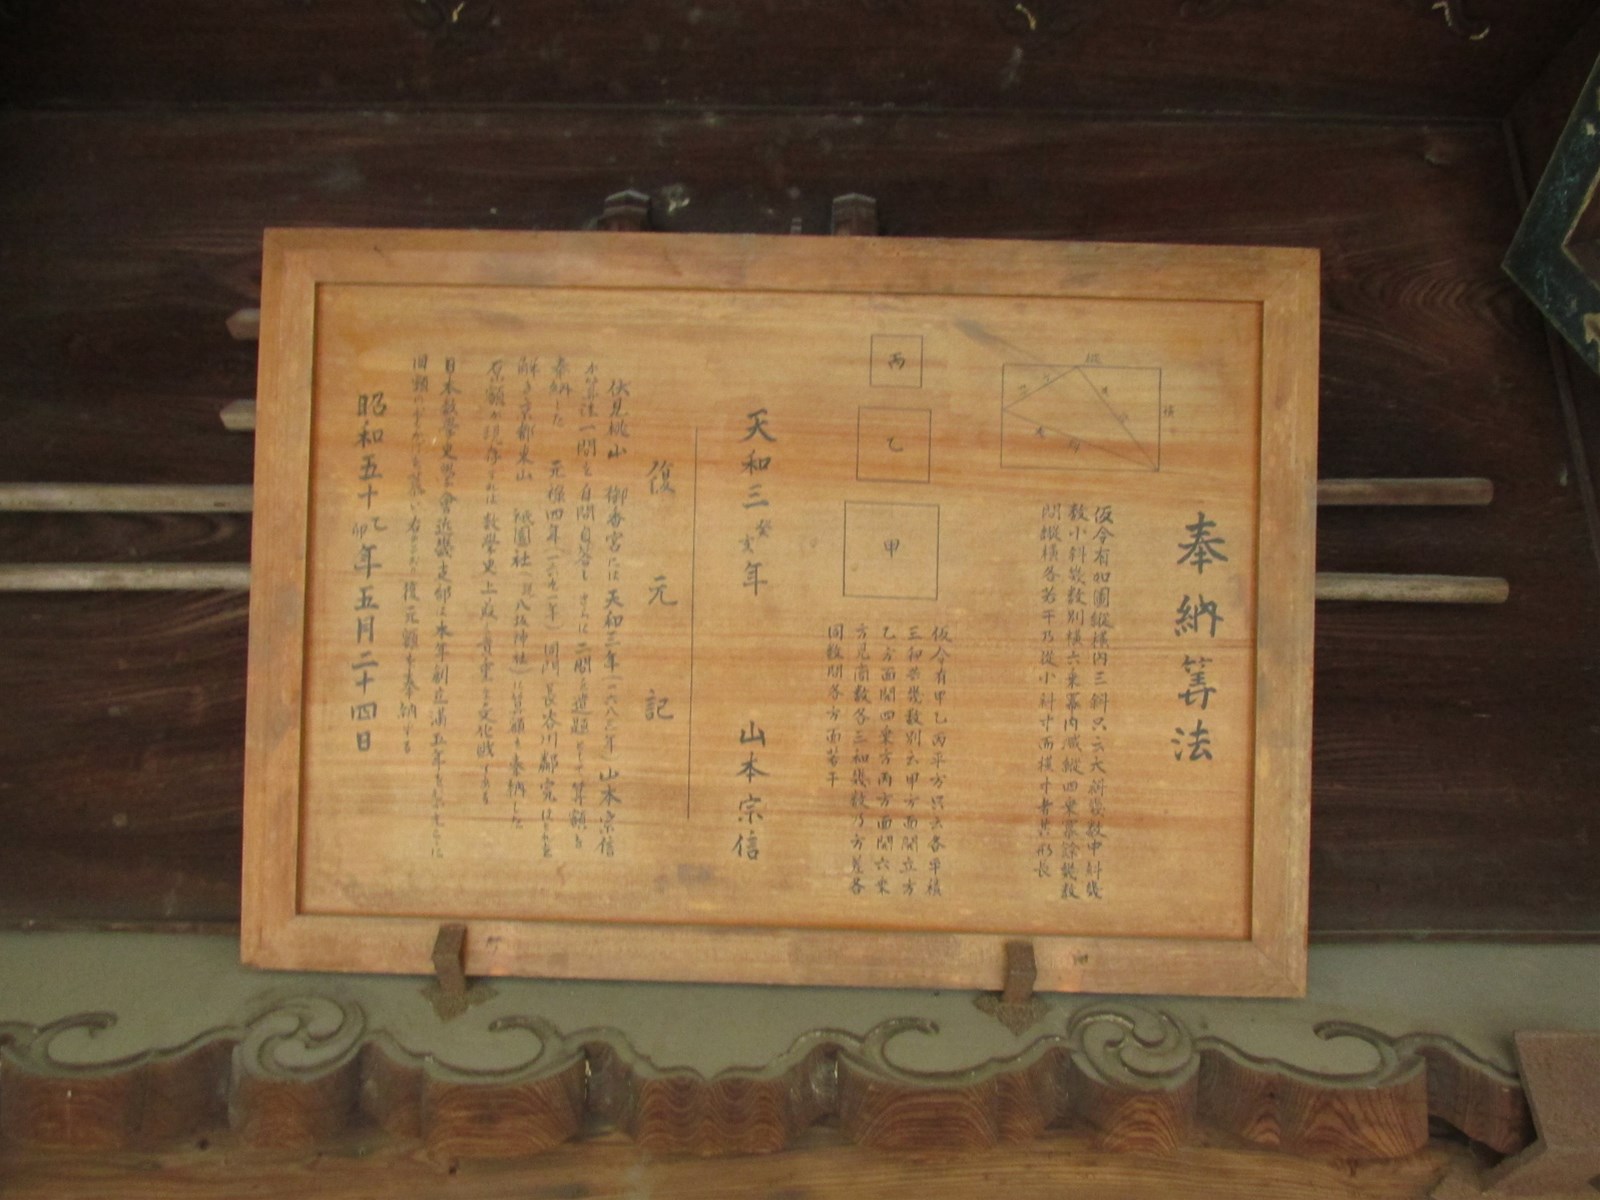 奉納算法
縦
横
仮令有如圖縦横内三斜只云大斜幾数中斜幾
数小斜幾数別横六乗冪内減縦四乗冪餘幾数
問縦横各若干乃従小斜寸而横寸者共形長
丙
乙
甲
仮令有甲乙丙平方只云各平積
三和共幾数別云甲方面開立方
乙方面開四乗方丙方面開六乗
方見商数各三和幾数乃方差各
同数問各方面若干
天和三癸亥年 山本宗信
復元記
伏見桃山 御香宮には天和三年(一六八三年)山本宗信
が算法一問を自問自答し さらに二問を遺題として算額を
奉納した 元禄四年(一六九一年)同門長谷川鄰完はこれを
解き京都東山 祇園社(現八坂神社)に算額を奉納した
原額が現存すれば数学史上最も貴重な文化財である
日本数學史學會近畿支部は本年創立満五年を
旧額 復元額を奉納する
昭和五十乙卯年五月二十四日